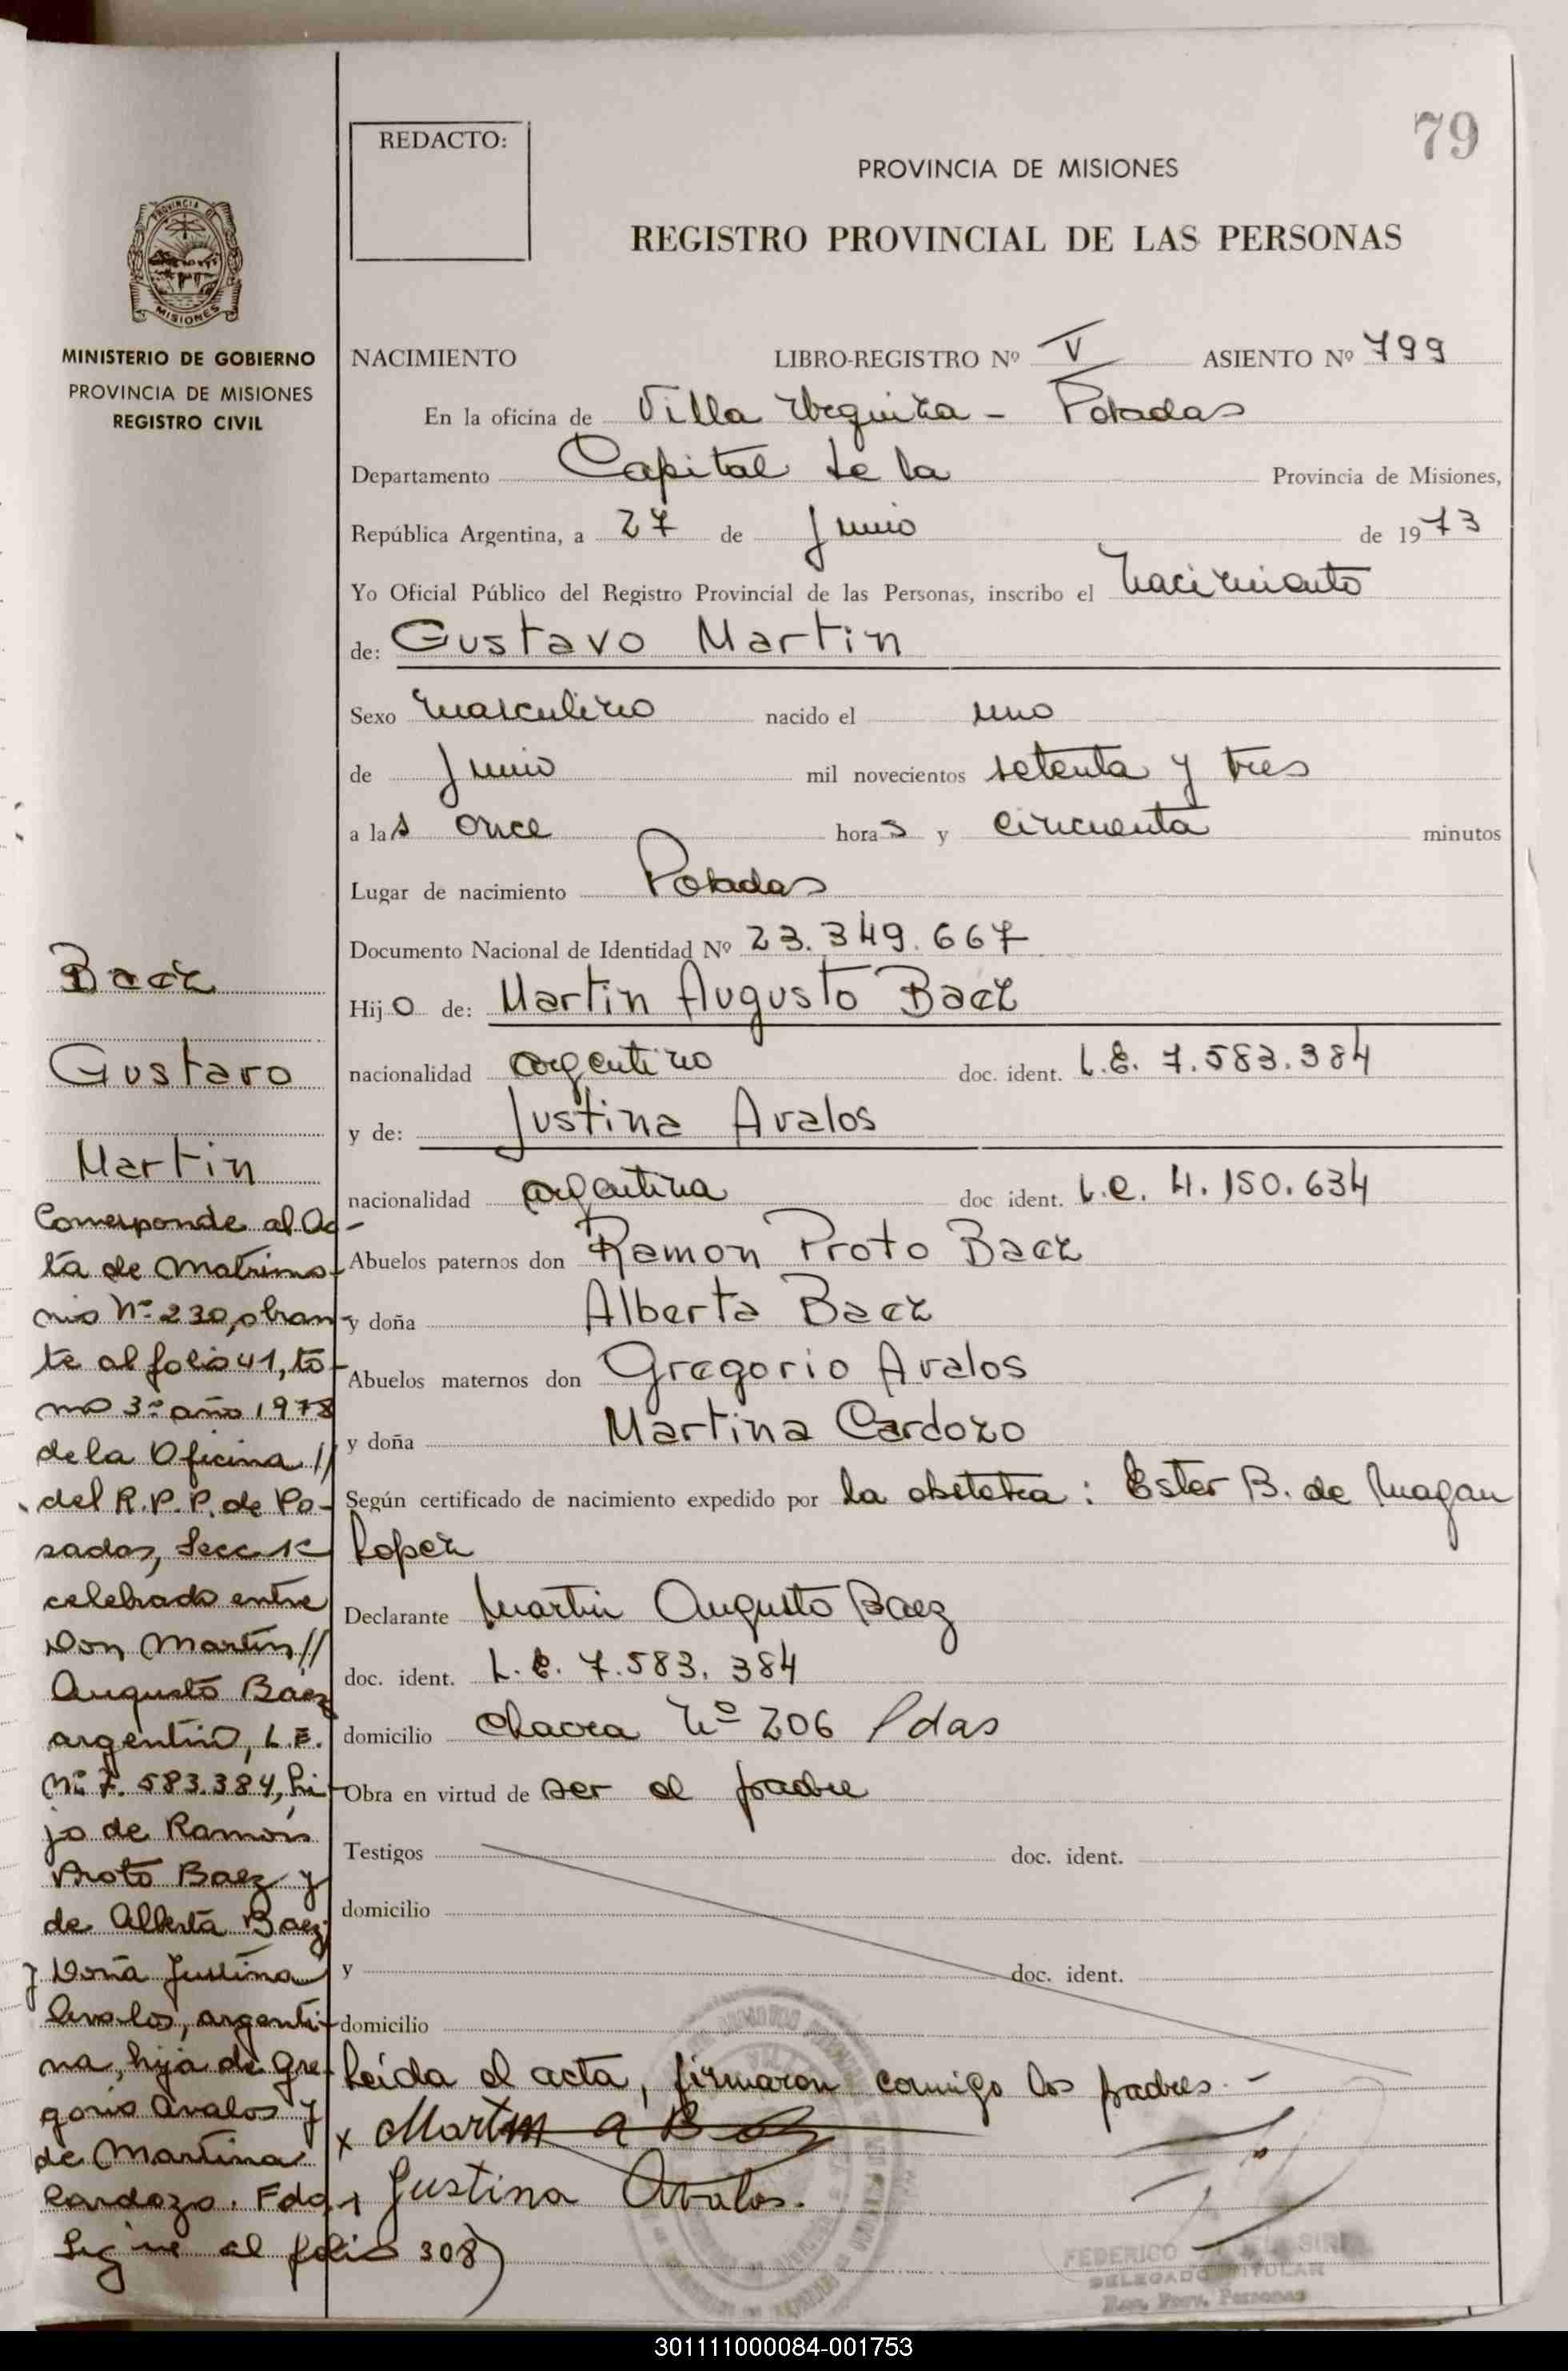 79
REDACTO:
PROVINCIA DE MISIONES
REGISTRO PROVINCIAL DE LAS PERSONAS
PROVINCIA DE
MISIONES
MINISTERIO DE GOBIERNO
PROVINCIA DE MISIONES
REGISTRO CIVIL
NACIMIENTO LIBRO-REGISTRO Nº V ASIENTO Nº 799
En la oficina de Villa Urquiza - Posadas
Departamento Capital de la Provincia de Misiones,
República Argentina, a 27 de Junio de 1973
Yo Oficial Público del Registro Provincial de las Personas, inscribo el nacimiento
de: Gustavo Martin
Sexo masculino nacido el uno
de Junio mil novecientos setenta y tres
a las once horas y cincuenta minutos
Lugar de nacimiento Posadas
Documento Nacional de Identidad Nº 23.349.667
Hijo de: Martin Augusto Baez
nacionalidad argentino doc. ident. L.E. 7.583.384
y de: Justina Avalos
nacionalidad argentina doc ident. L.C. 4.150.634
Abuelos paternos don Ramon Proto Baez
y doña Alberta Baez
Abuelos maternos don Gregorio Avalos
y doña Martina Cardozo
Según certificado de nacimiento expedido por la obstetra: Ester B. de Magan
Lopez
Declarante Martin Augusto Baez
doc. ident. L.E. 7.583.384
domicilio chacra Nº 206 Pdas
Obra en virtud de ser el padre
Testigos doc. ident.
domicilio
y doc. ident.
domicilio
Leida el acta, firmaron conmigo los padres.-
x Martin A B
x Justina Avalos.
FEDERICO
DELEGADO TITULAR
Reg. Prov. Personas
Baez
Gustavo
Martin
Corresponde al Ac-
ta de Matrimo-
nio Nº 230, obran-
te al folio 41, to-
mo 3º año 1978
de la Oficina //
del R.P.P. de Po-
sadas, Secc 1º
celebrado entre
Don Martin //
Augusto Baez
argentino, L.E.
Nº 7.583.384, hi-
jo de Ramón
Proto Baez y
de Alberta Baez
y Doña Justina
Avalos, argenti-
na, hija de Gre-
gorio Avalos y
de Martina
Cardozo. Fdo.
Sigue al folio 308)
301111000084-001753